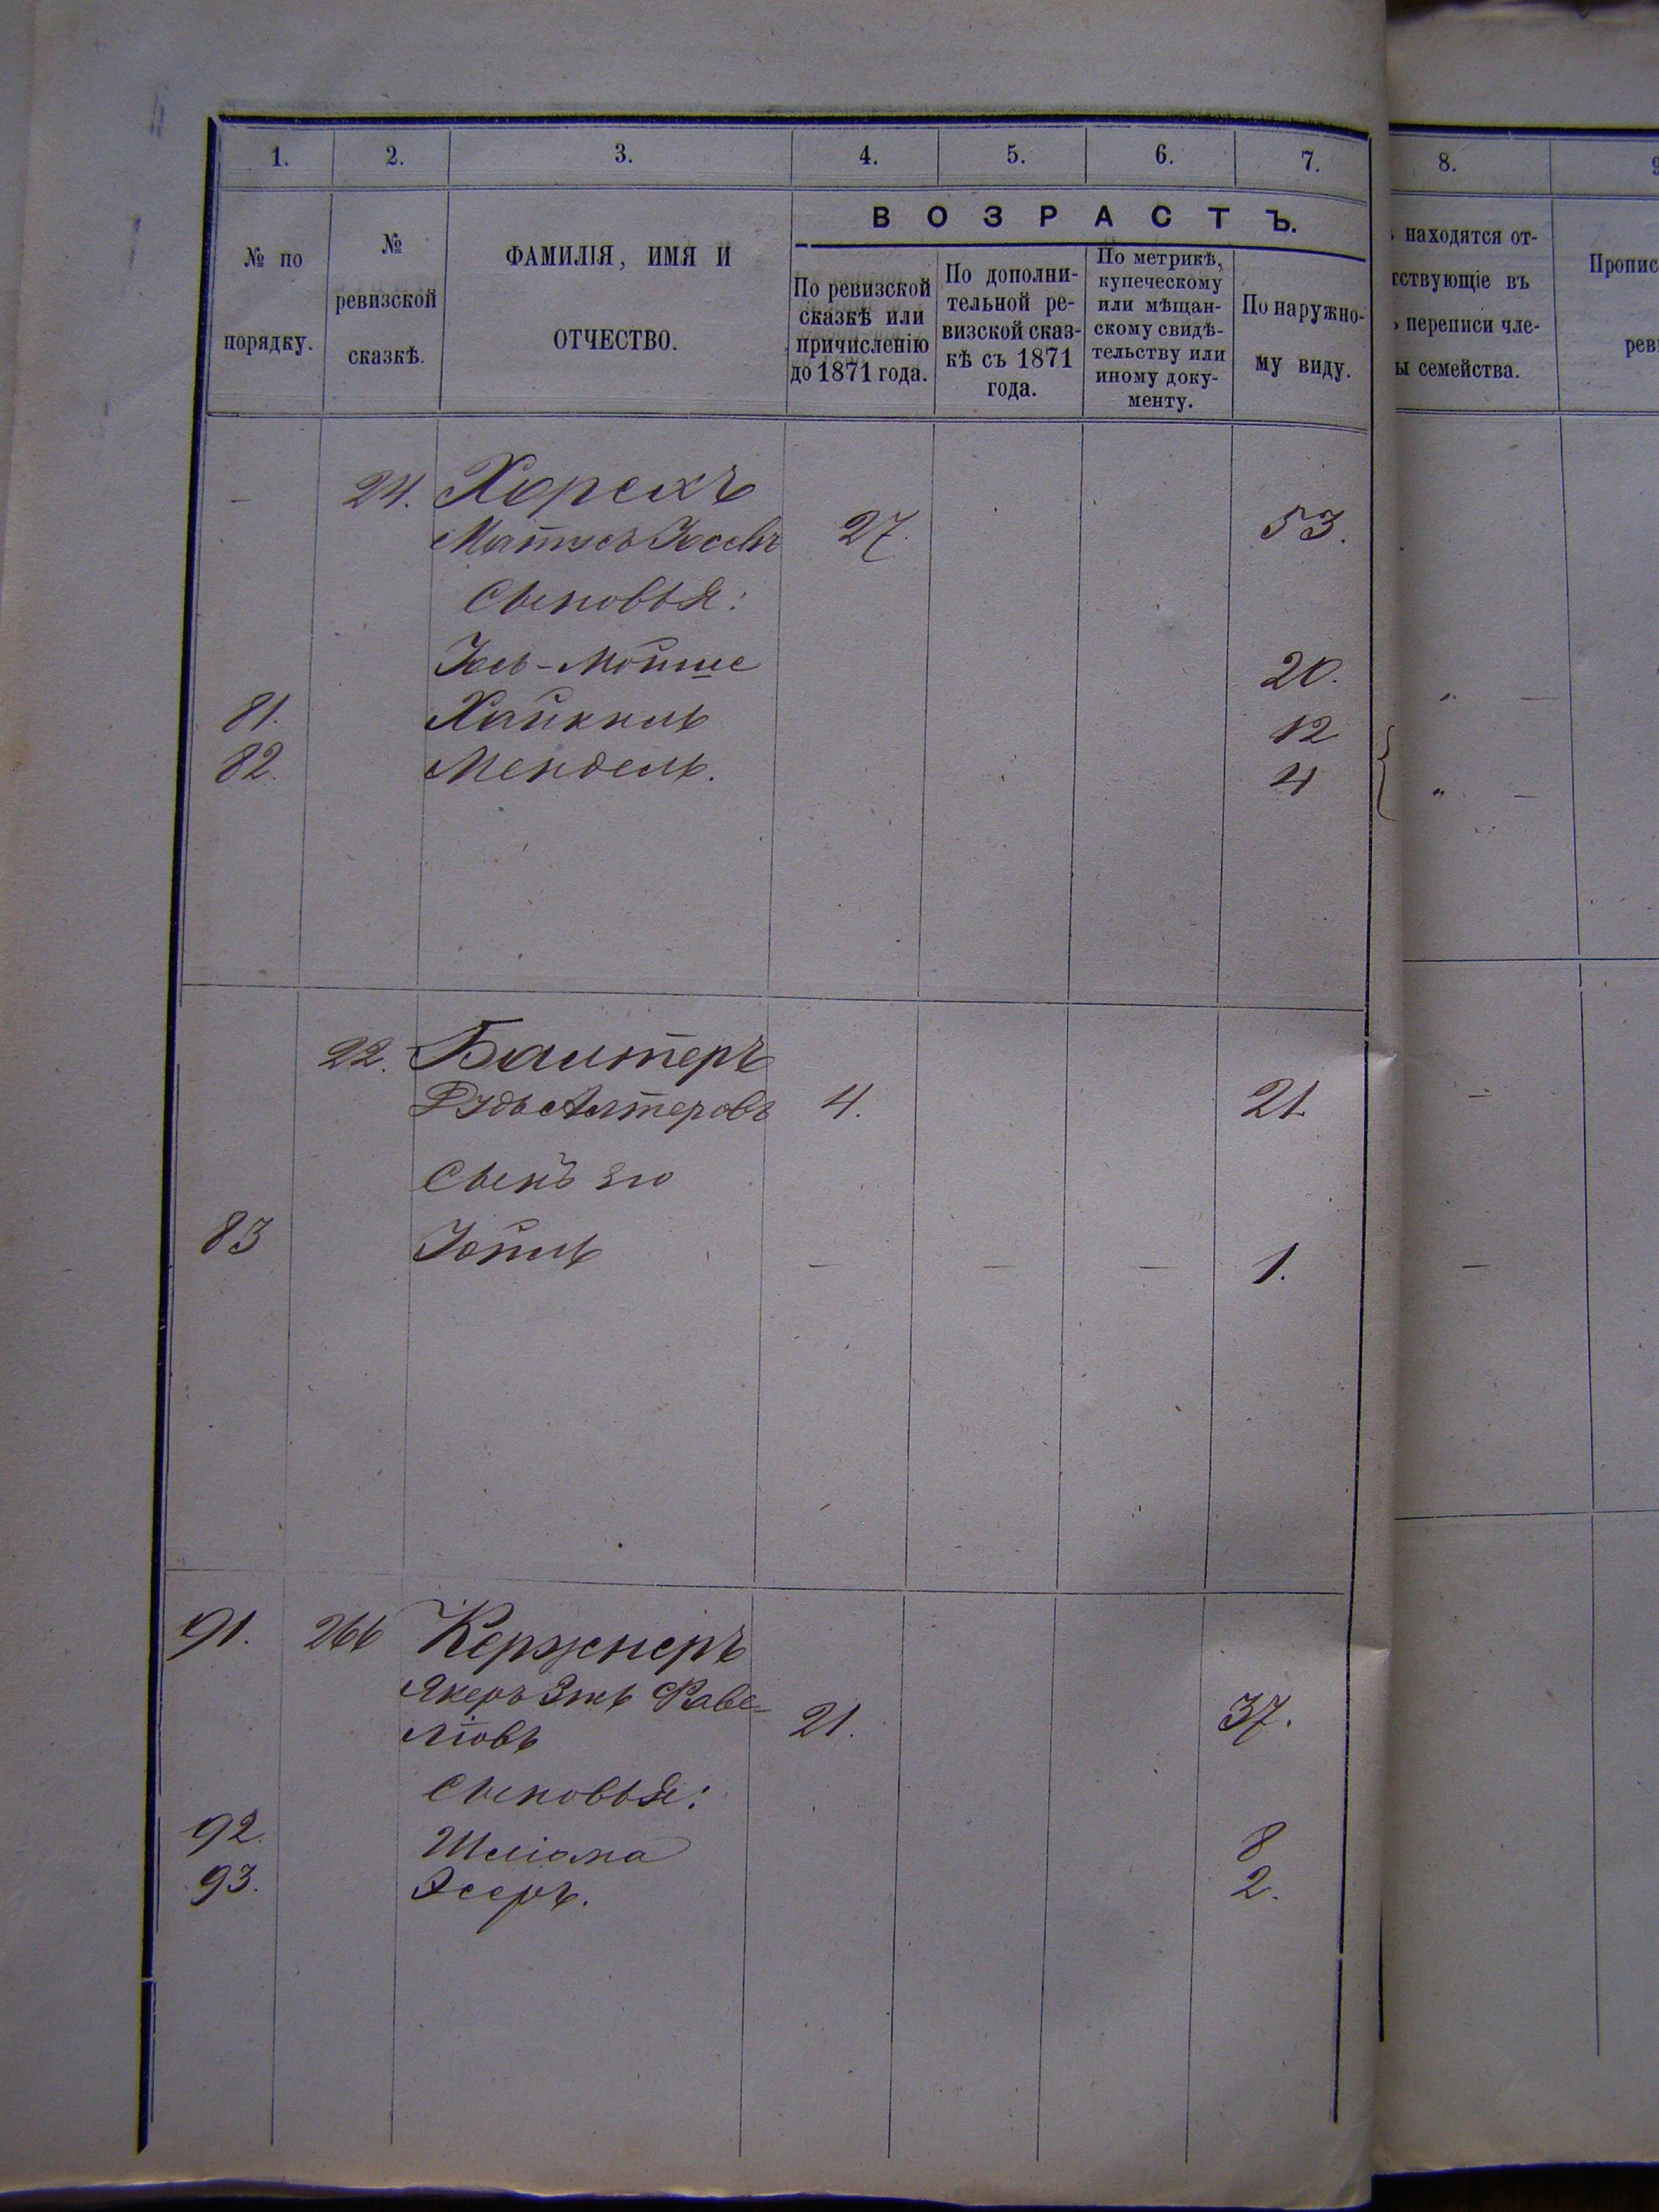 1. 2. 3. 4. 5. 6. 7. 8.
№ по порядку.
№ ревизской сказкѣ.
ФАМИЛІЯ, ИМЯ И ОТЧЕСТВО.
ВОЗРАСТЪ.
По ревизской сказкѣ или причисленію до 1871 года.
По дополнительной ревизской сказкѣ съ 1871 года.
По метрикѣ, купеческому или мѣщанскому свидѣтельству или иному документу.
По наружному виду.
находятся от-
тствующіе въ
переписи чле-
ы семейства.
Пропис
рев
— 24. Хорекъ
Матусъ Іосевъ 27. 53.
Сыновья:
Іось-Мойше 20. " —
81. Хайкель 12
82. Мендель. 4 " —
22. Балтеръ
Рудь Алтеровъ 4. 21. —
Сынъ его
83 Іойль — — — 1. —
91. 266 Кержнеръ
Янкель Раве-
ліовъ 21. 37.
Сыновья:
92. Шліома 8
93. Ясеръ. 2.